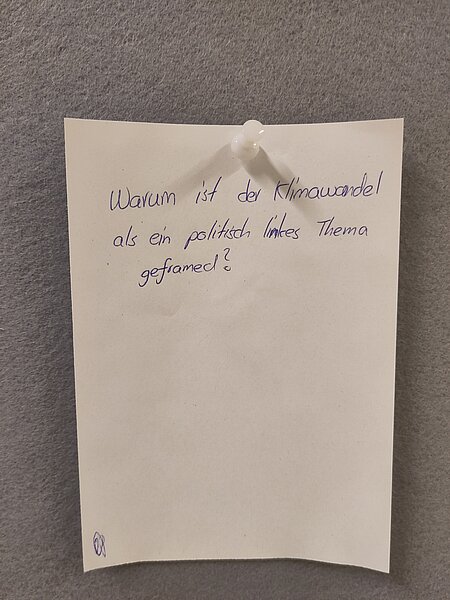 Warum ist der Klimawandel
als ein politisch linkes Thema
geframed?